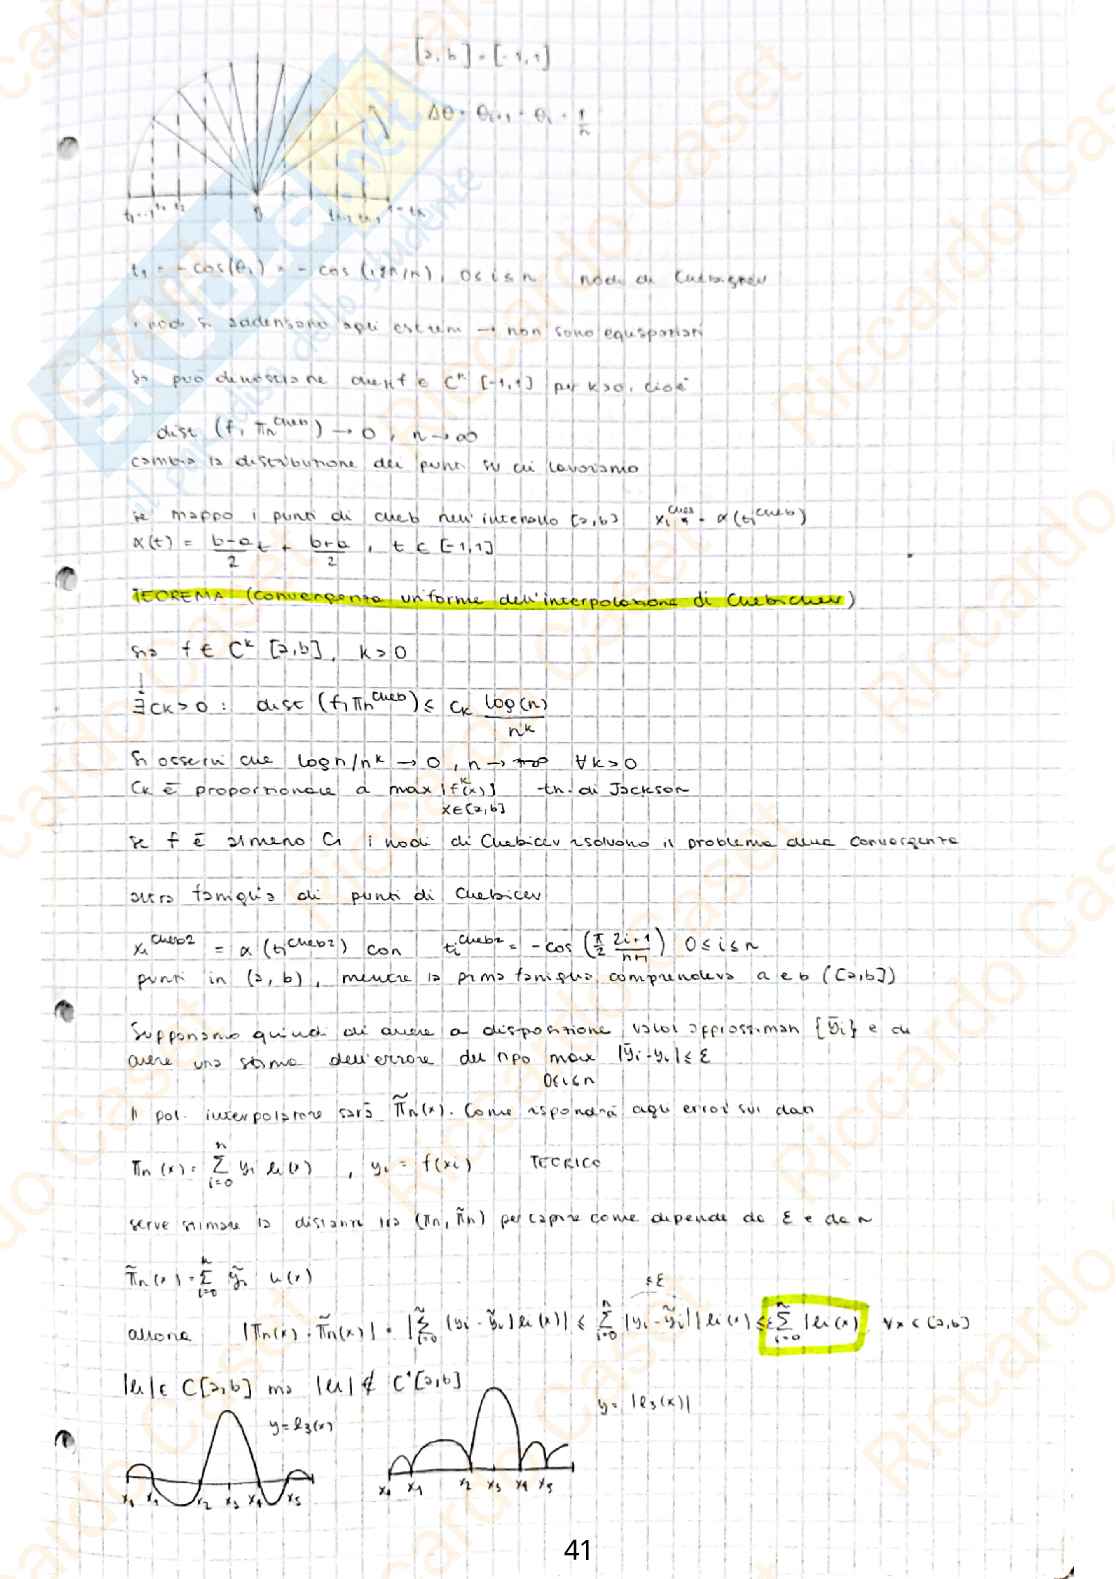 [a,b] = [-1,1]
Δθ = θi+1 - θi = 1/n
t1 t2 0 tn
ti = -cos(θi) = -cos(iπ/n), 0≤i≤n nodi di Chebyshev
i nodi si addensano agli estremi → non sono equispaziati
Si può dimostrare che f ∈ C^k [-1,1] per k>0, cioè
dist (f, πn^cheb) → 0, n→∞
cambia la distribuzione dei punti su cui lavoriamo
se mappo i punti di cheb nell'intervallo [a,b] xi^cheb = α(ti^cheb)
α(t) = b-a/2 t + b+a/2, t ∈ [-1,1]
TEOREMA (convergenza uniforme dell'interpolazione di Chebichev)
sia f ∈ C^k [a,b], k>0
↓
∃ Ck>0 : dist (f, πn^cheb) ≤ Ck log(n)/n^k
Si osservi che log n/n^k → 0, n→+∞ ∀k>0
Ck è proporzionale a max |f^k(x)| th. di Jackson
x∈[a,b]
se f è almeno C1 i nodi di Chebicev risolvono il problema della convergenza
altra famiglia di punti di Chebicev
xi^cheb2 = α(ti^cheb2) con ti^cheb2 = -cos(π/2 2i+1/n+1) 0≤i≤n
punti in (a,b), mentre la prima famiglia comprendeva a e b ([a,b])
Supponiamo quindi di avere a disposizione valori approssimati {ỹi} e di
avere una stima dell'errore del tipo max |ỹi-yi| ≤ ε
0≤i≤n
Il pol. interpolatore sarà π̃n(x). Come risponderà agli errori sui dati
πn(x) = Σ i=0 n yi li(x), yi = f(xi) TEORICO
serve stimare la distanza tra (πn, π̃n) per capire come dipende da ε e da n
π̃n(x) = Σ i=0 n ỹi li(x)
≤ε
allora |πn(x) - π̃n(x)| = |Σ i=0 n (yi - ỹi) li(x)| ≤ Σ i=0 n |yi-ỹi| |li(x)| ≤ ε Σ i=0 n |li(x)| ∀x∈[a,b]
|li| ∈ C[a,b] ma |li| ∉ C¹[a,b]
y=l3(x)
y= |l3(x)|
x0 x1 x2 x3 x4 x5
x0 x1 x2 x3 x4 x5
41
SKUOLA.net
il paradiso dello studente
Riccardo Caset